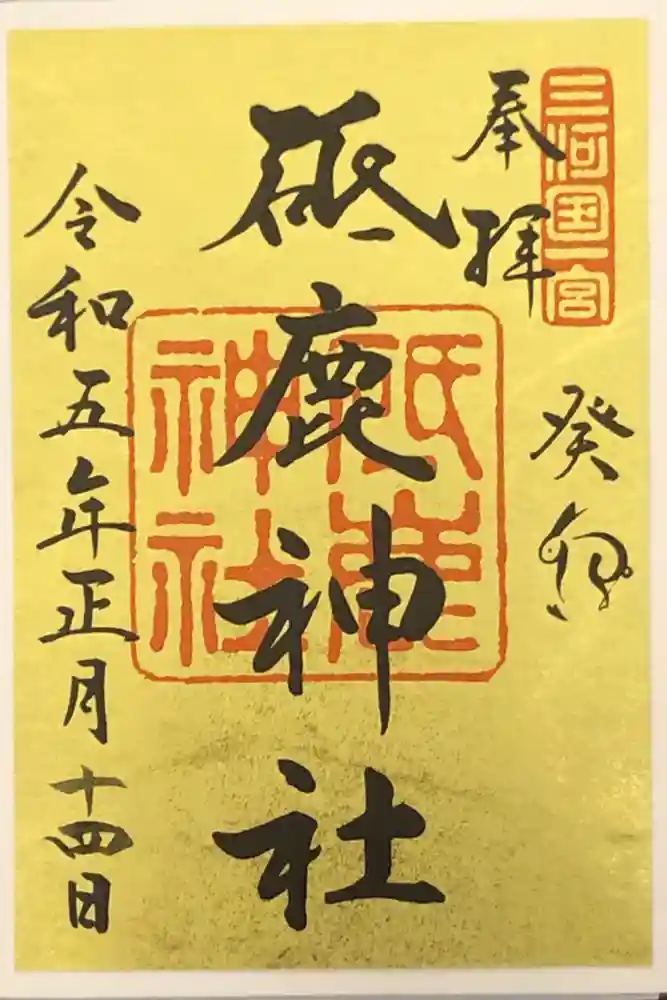 三河国一宮
奉拝
癸卯
砥鹿神社
砥鹿
神社
令和五年正月十四日